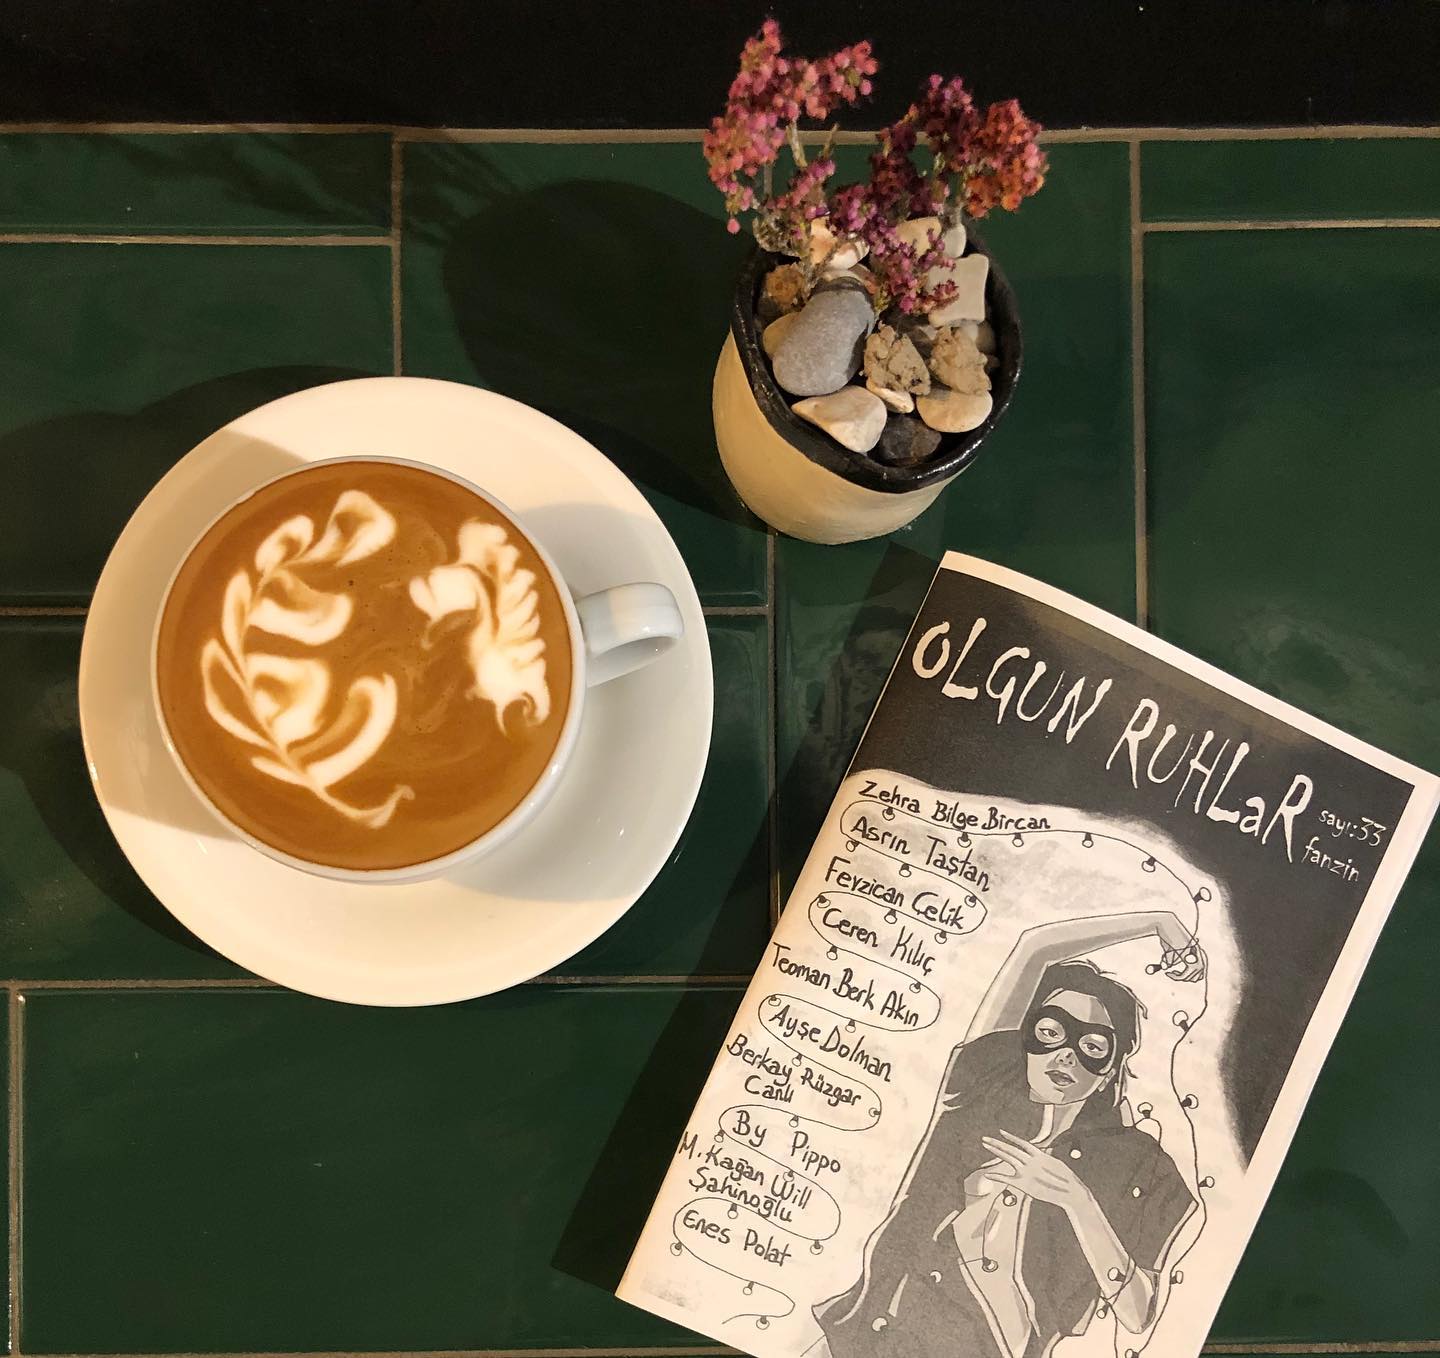 OLGUN RUHLaR
sayı:33
fanzin
Zehra Bilge Bircan
Asrın Taştan
Fevzican Çelik
Ceren Kılıç
Teoman Berk Akın
Ayşe Dolman
Berkay Rüzgar
Canlı
By Pippo
M. Kağan Will
Şahinoğlu
Enes Polat